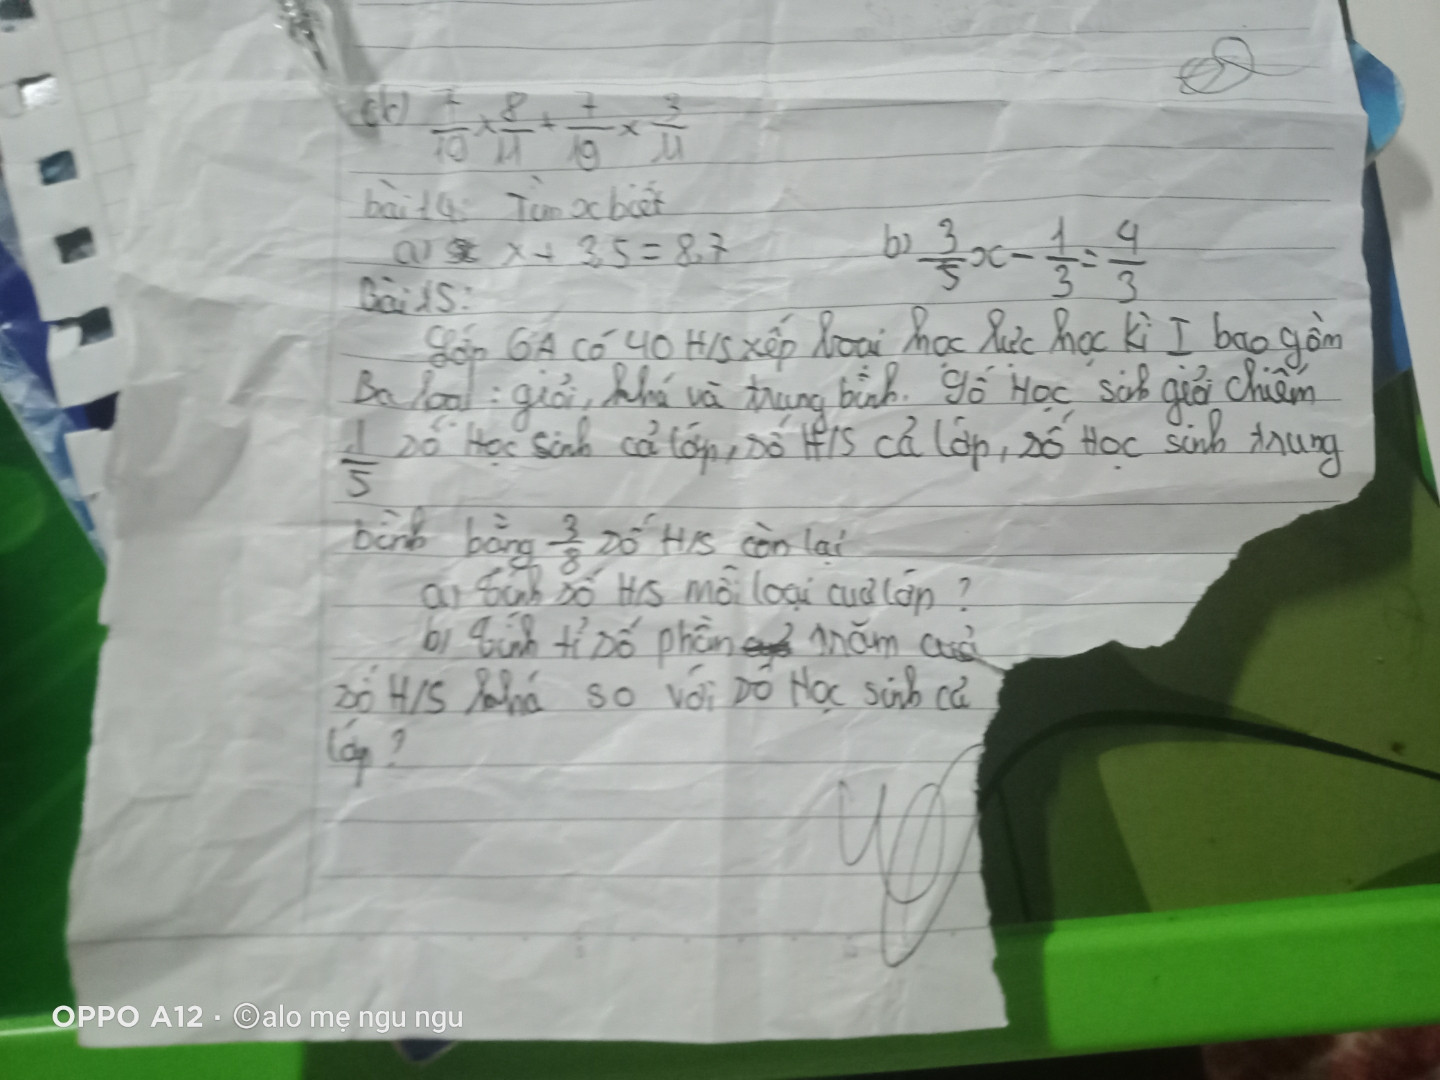 c) 7/19 x 8/11 + 7/19 x 3/11
bài 14: Tìm x biết
a) x + 3,5 = 8,7 b) 3/5 x - 1/3 = 4/3
Bài 15:
Lớp 6A có 40 H/S xếp loại học lực học kì I bao gồm
Ba loại: giỏi, khá và trung bình. Số Học sinh giỏi chiếm
1/5 số Học sinh cả lớp, số H/S cả lớp, số Học sinh trung
bình bằng 3/8 số H/S còn lại
a) tính số H/S mỗi loại cuả lớp?
b) tính tỉ số phần trăm cuả
số H/S khá so với số Học sinh cả
lớp?
OPPO A12 · ©alo mẹ ngu ngu